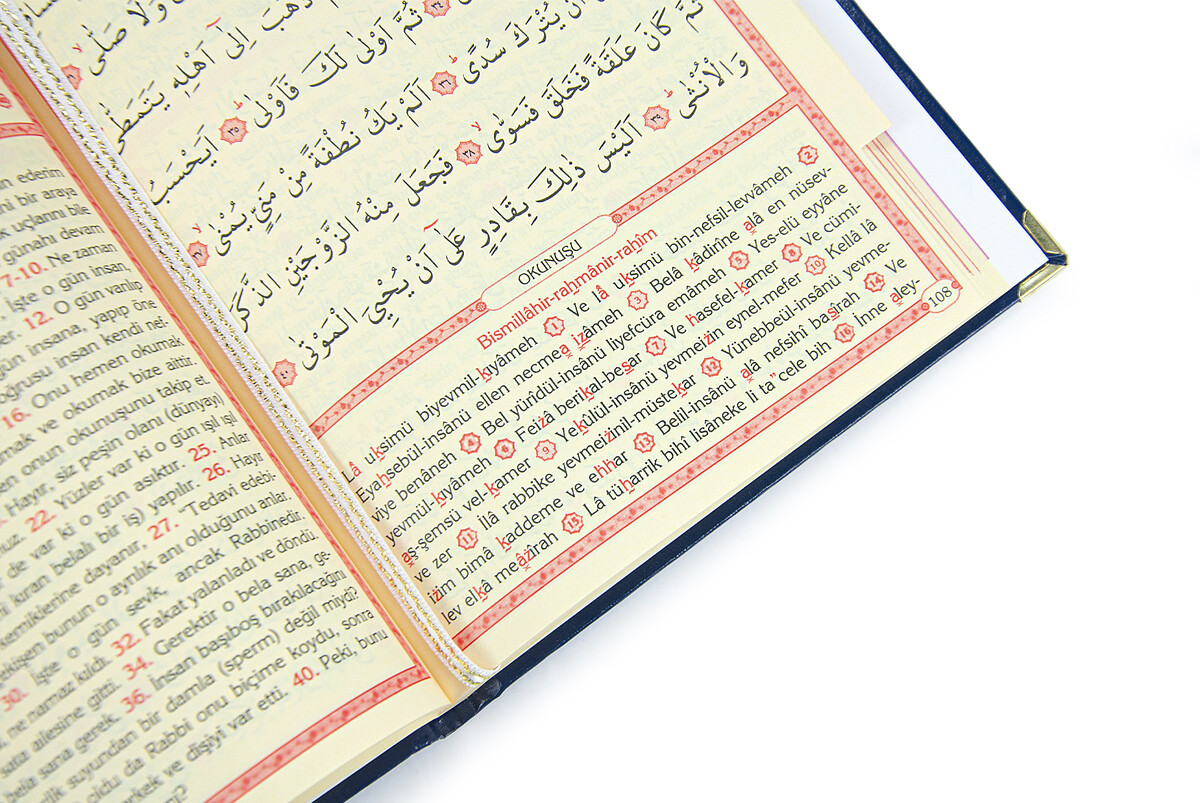 وَلَا صَلّٰى
ذَهَبَ اِلٰٓى اَهْلِه۪ يَتَمَطّٰى
ثُمَّ اَوْلٰى لَكَ فَاَوْلٰى ٣٥ اَيَحْسَبُ
اَنْ يُتْرَكَ سُدًى ٣٦ اَلَمْ يَكُ نُطْفَةً مِنْ مَنِيٍّ يُمْنٰى ٣٧
ثُمَّ كَانَ عَلَقَةً فَخَلَقَ فَسَوّٰى ٣٨ فَجَعَلَ مِنْهُ الزَّوْجَيْنِ الذَّكَرَ
وَالْاُنْثٰى ٣٩ اَلَيْسَ ذٰلِكَ بِقَادِرٍ عَلٰٓى اَنْ يُحْيِيَ الْمَوْتٰى ٤٠
OKUNUŞU
Bismillâhir-rahmânir-rahîm
Lâ uksimü biyevmil-kıyâmeh 1 Ve lâ uksimü bin-nefsil-levvâmeh 2
Eyahsebül-insânü ellen necmea izâmeh 3 Belâ kâdirîne alâ en nüsev-
viye benâneh 4 Bel yürîdül-insânü liyefcüra emâmeh 5 Yes-elü eyyâne
yevmül-kıyâmeh 6 Feizâ berikal-besar 7 Ve hasefel-kamer 8 Ve cümi-
aş-şemsü vel-kamer 9 Yekûlül-insânü yevmeizin eynel-mefer 10 Kellâ lâ
ve zer 11 İlâ rabbike yevmeizinil-müstekar 12 Yünebbeül-insânü yevme-
izim bimâ kaddeme ve ehhar 13 Belil-insânü alâ nefsihî basîrah 14 Ve
lev elkâ meâzîrah 15 Lâ tüharrik bihî lisâneke li ta"cele bih 16 İnne aley-
108
ederim
bir araya
uçlarını bile
günahı devam
7-10. Ne zaman
İşte o gün insan,
12. O gün varılıp
gün insana, yapıp öne
oğrusu insan kendi nef-
16. Onu hemen okumak
mak ve okumak bize aittir.
en onun okunuşunu takip et.
Hayır, siz peşin olanı (dünyayı)
22. Yüzler var ki o gün ışıl ışıl
de var ki o gün asıktır. 25. Anlar
kıran belalı bir iş) yapılır. 26. Hayır
kemiklerine dayanır, 27. "Tedavi edebi-
bunun o ayrılık anı olduğunu anlar.
30. İşte o gün sevk, ancak Rabbinedir.
ne namaz kıldı. 32. Fakat yalanladı ve döndü.
ailesine gitti. 34. Gerektir o bela sana, ge-
bela sana gerek. 36. İnsan başıboş bırakılacağını
suyundan bir damla (sperm) değil miydi?
oldu da Rabbi onu biçime koydu, sonra
erkek ve dişiyi var etti. 40. Peki, bunu